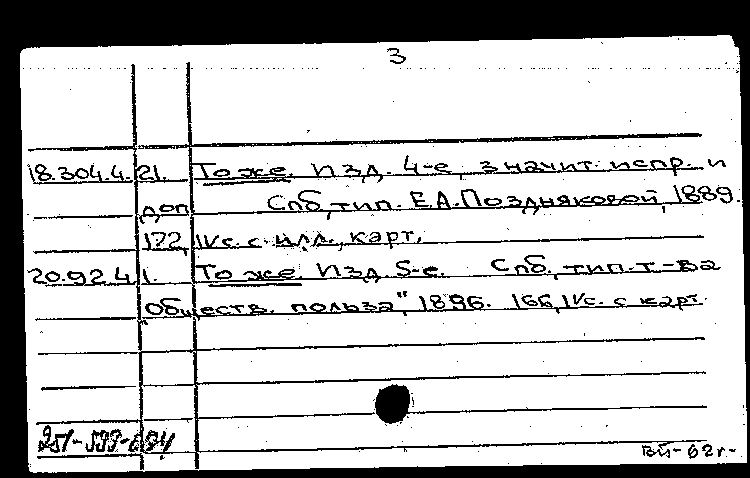 3
18.304.4.21. То же. Изд. 4-е, значит. испр. и
доп. Спб, тип. Е.А.Поздняковой, 1889.
122, IVс. с илл., карт.
20.92.4.1. То же. Изд. 5-е. Спб, тип. т-ва
"Обществ. польза", 1896. 166, IVс. с карт.
251-599-684